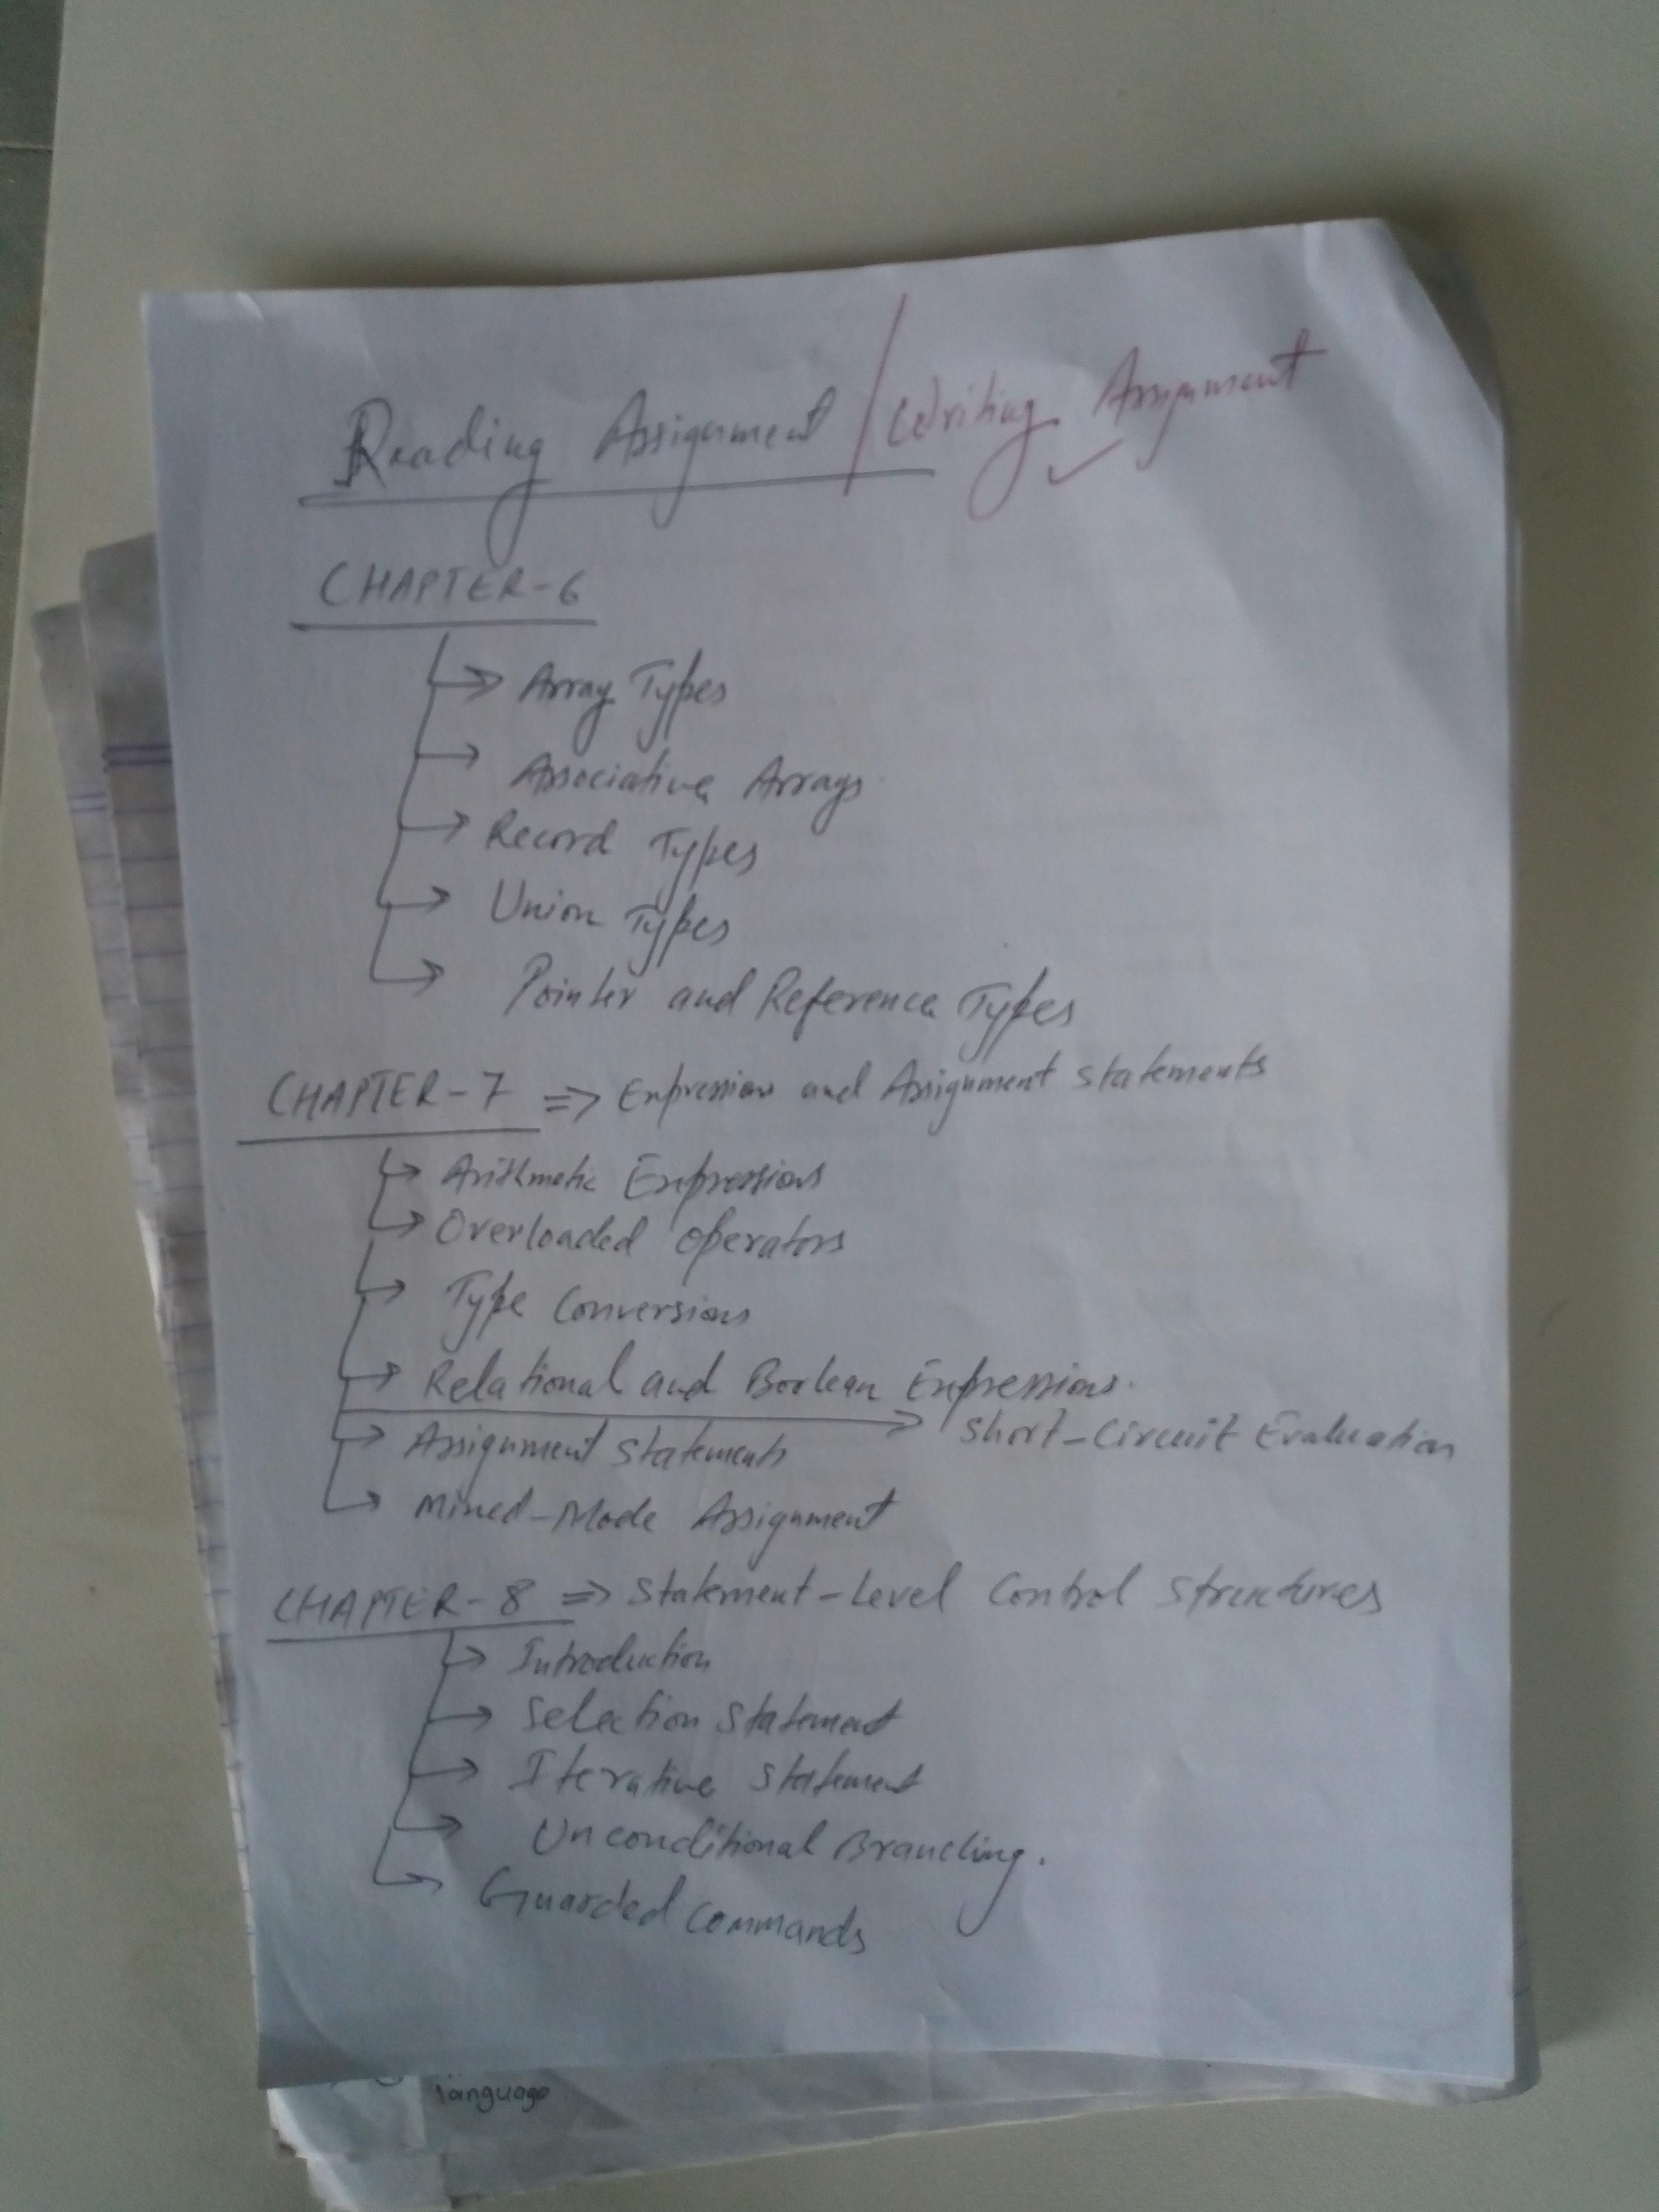 Reading Assignment / Writing Assignment
CHAPTER-6
Array Types
Associative Arrays
Record Types
Union Types
Pointer and Reference Types
CHAPTER-7 => Expression and Assignment statements
Arithmetic Expressions
Overloaded operators
Type Conversions
Relational and Boolean Expressions.
Short-Circuit Evaluation
Assignment statements
Mixed-Mode Assignment
CHAPTER-8 => Statement-Level Control Structures
Introduction
Selection Statement
Iterative Statement
Unconditional Branching.
Guarded Commands
language